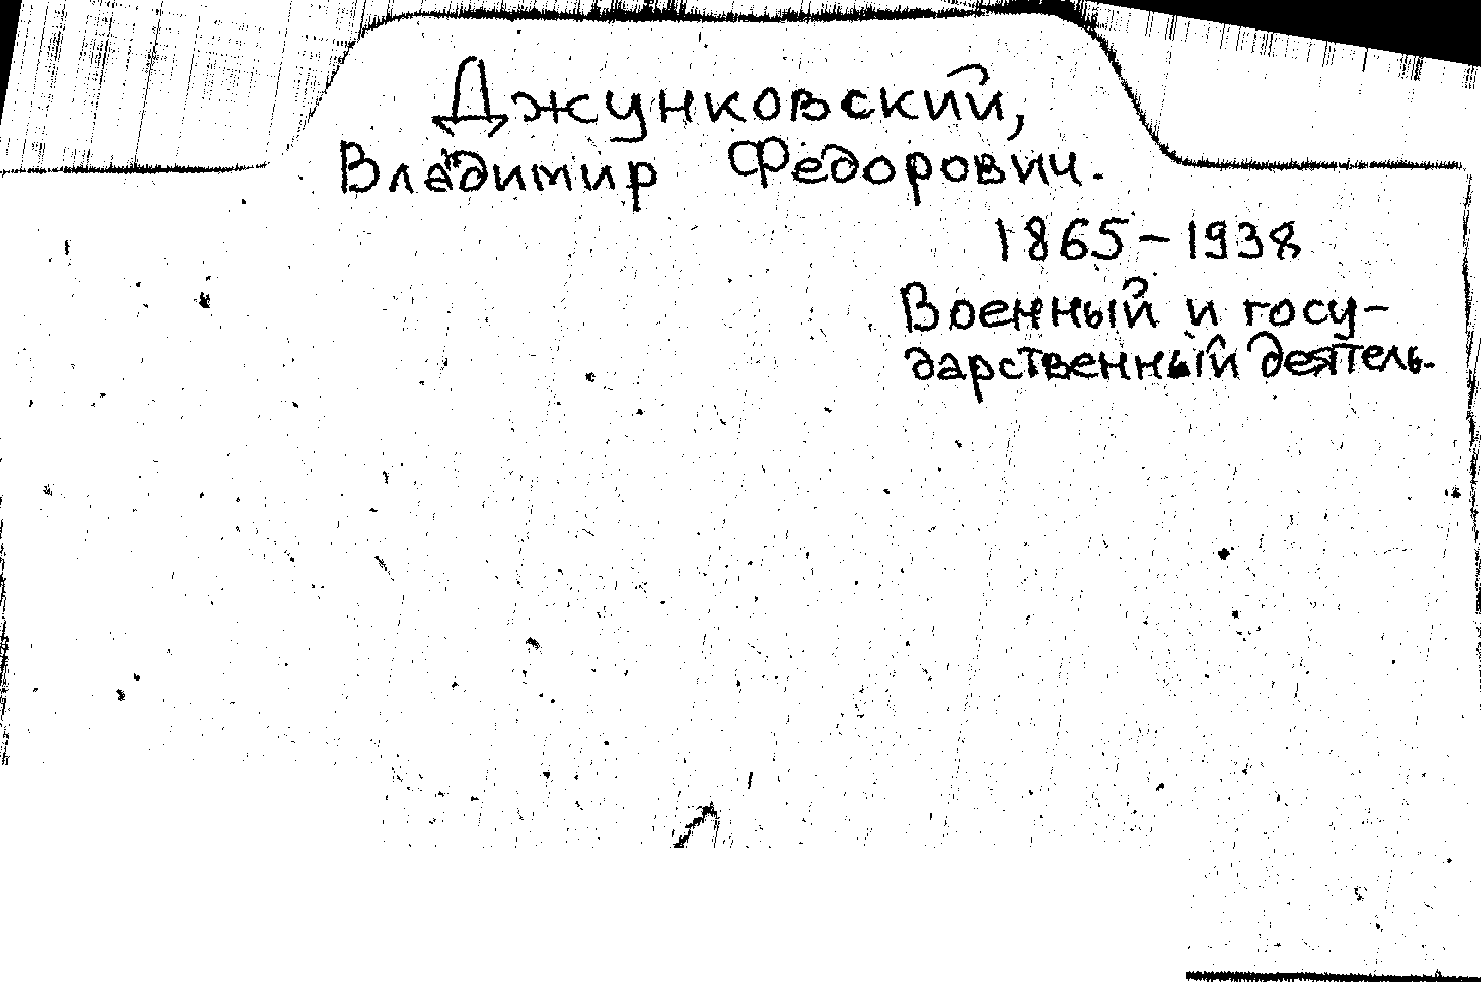 Джунковский,
Владимир Федорович.
1865-1938
Военный и госу-
дарственный деятель.